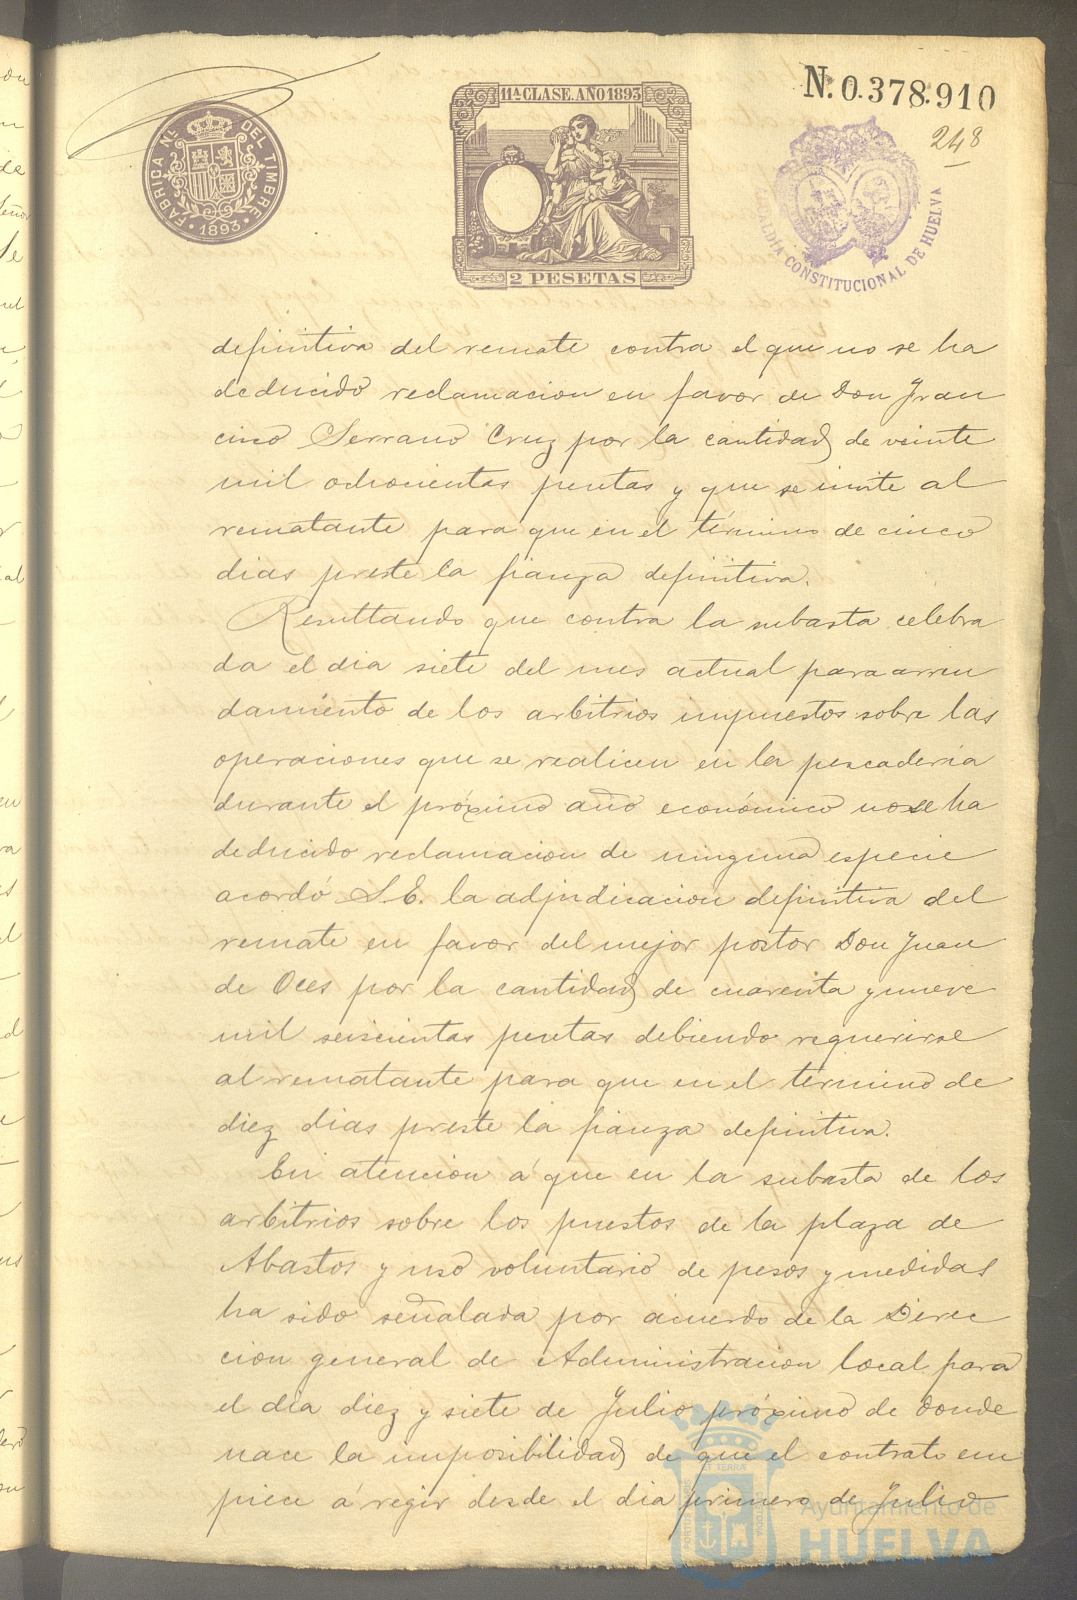 N. 0.378.910
248
11ª CLASE. AÑO 1893
FÁBRICA NL. DEL TIMBRE
1893
2 PESETAS
ALCALDIA CONSTITUCIONAL DE HUELVA
definitiva del remate contra el que no se ha
deducido reclamacion en favor de Don Fran
cisco Serrano Cruz por la cantidad de veinte
mil ochocientas pesetas y que se invite al
rematante para que en el término de cinco
dias preste la fianza definitiva.
Resultando que contra la subasta celebra
da el dia siete del mes actual para arren
damiento de los arbitrios impuestos sobre las
operaciones que se realicen en la pescadería
durante el próximo año económico no se ha
deducido reclamacion de ninguna especie
acordó S.E. la adjudicacion definitiva del
remate en favor del mejor postor Don Juan
de Oces por la cantidad de cuarenta y nueve
mil seiscientas pesetas debiendo requerirse
al rematante para que en el término de
diez dias preste la fianza definitiva.
En atencion á que en la subasta de los
arbitrios sobre los puestos de la plaza de
Abastos y uso voluntario de pesos y medidas
ha sido señalada por acuerdo de la Direc
cion general de Administracion local para
el dia diez y siete de Julio próximo de donde
nace la imposibilidad de que el contrato em
piece á regir desde el dia primero de Julio
Ayuntamiento de
HUELVA